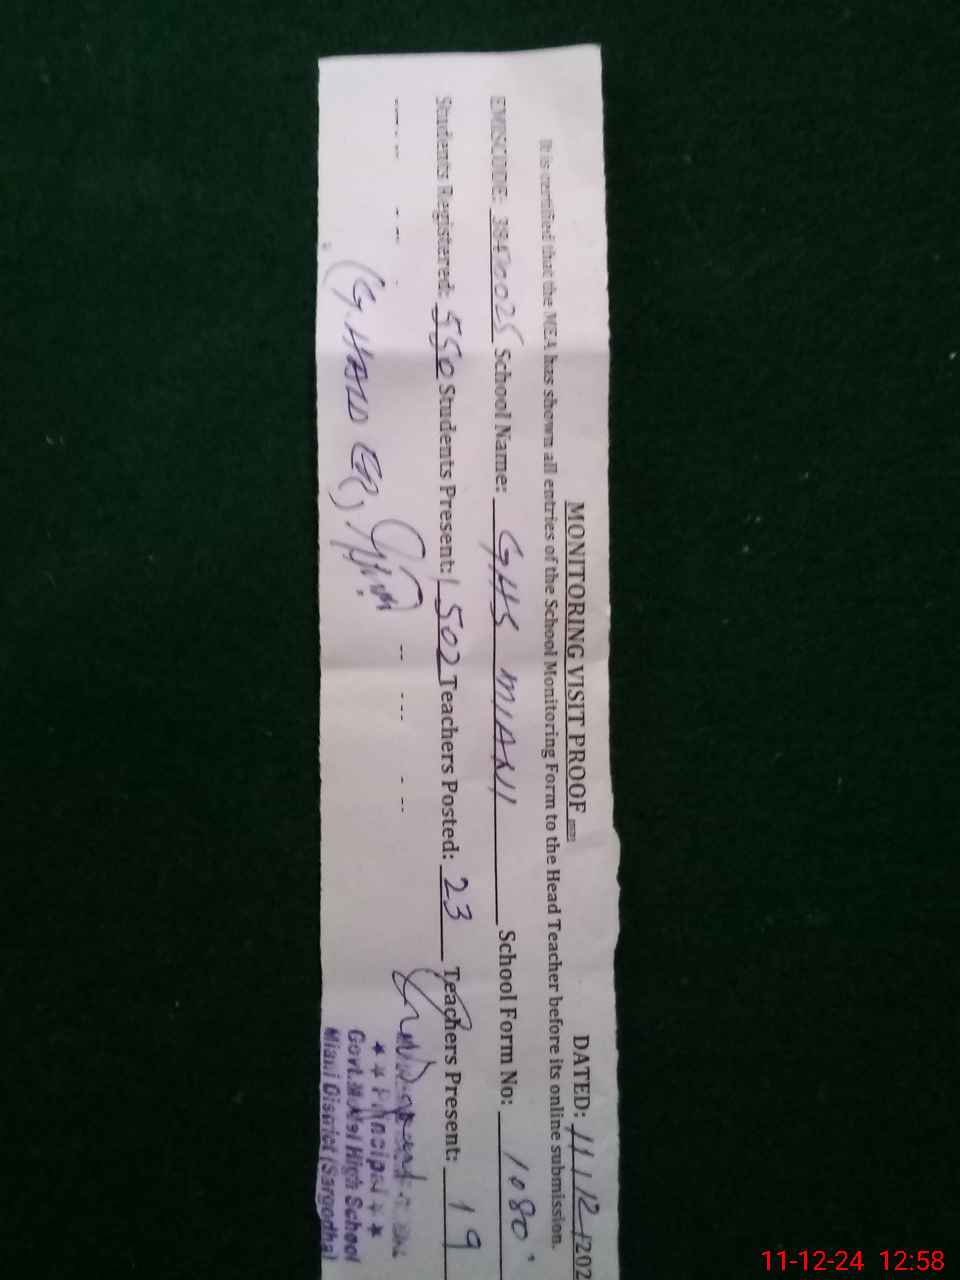 MONITORING VISIT PROOF DATED: 11/12/202
It is certified that the MEA has shown all entries of the School Monitoring Form to the Head Teacher before its online submission.
EMISCODE: School Name: GHS MIANI School Form No: 1080
Students Registered: 550 Students Present: 502 Teachers Posted: 23 Teachers Present: 19
Principal
Govt. Model High School
Miani District (Sargodha)
11-12-24 12:58